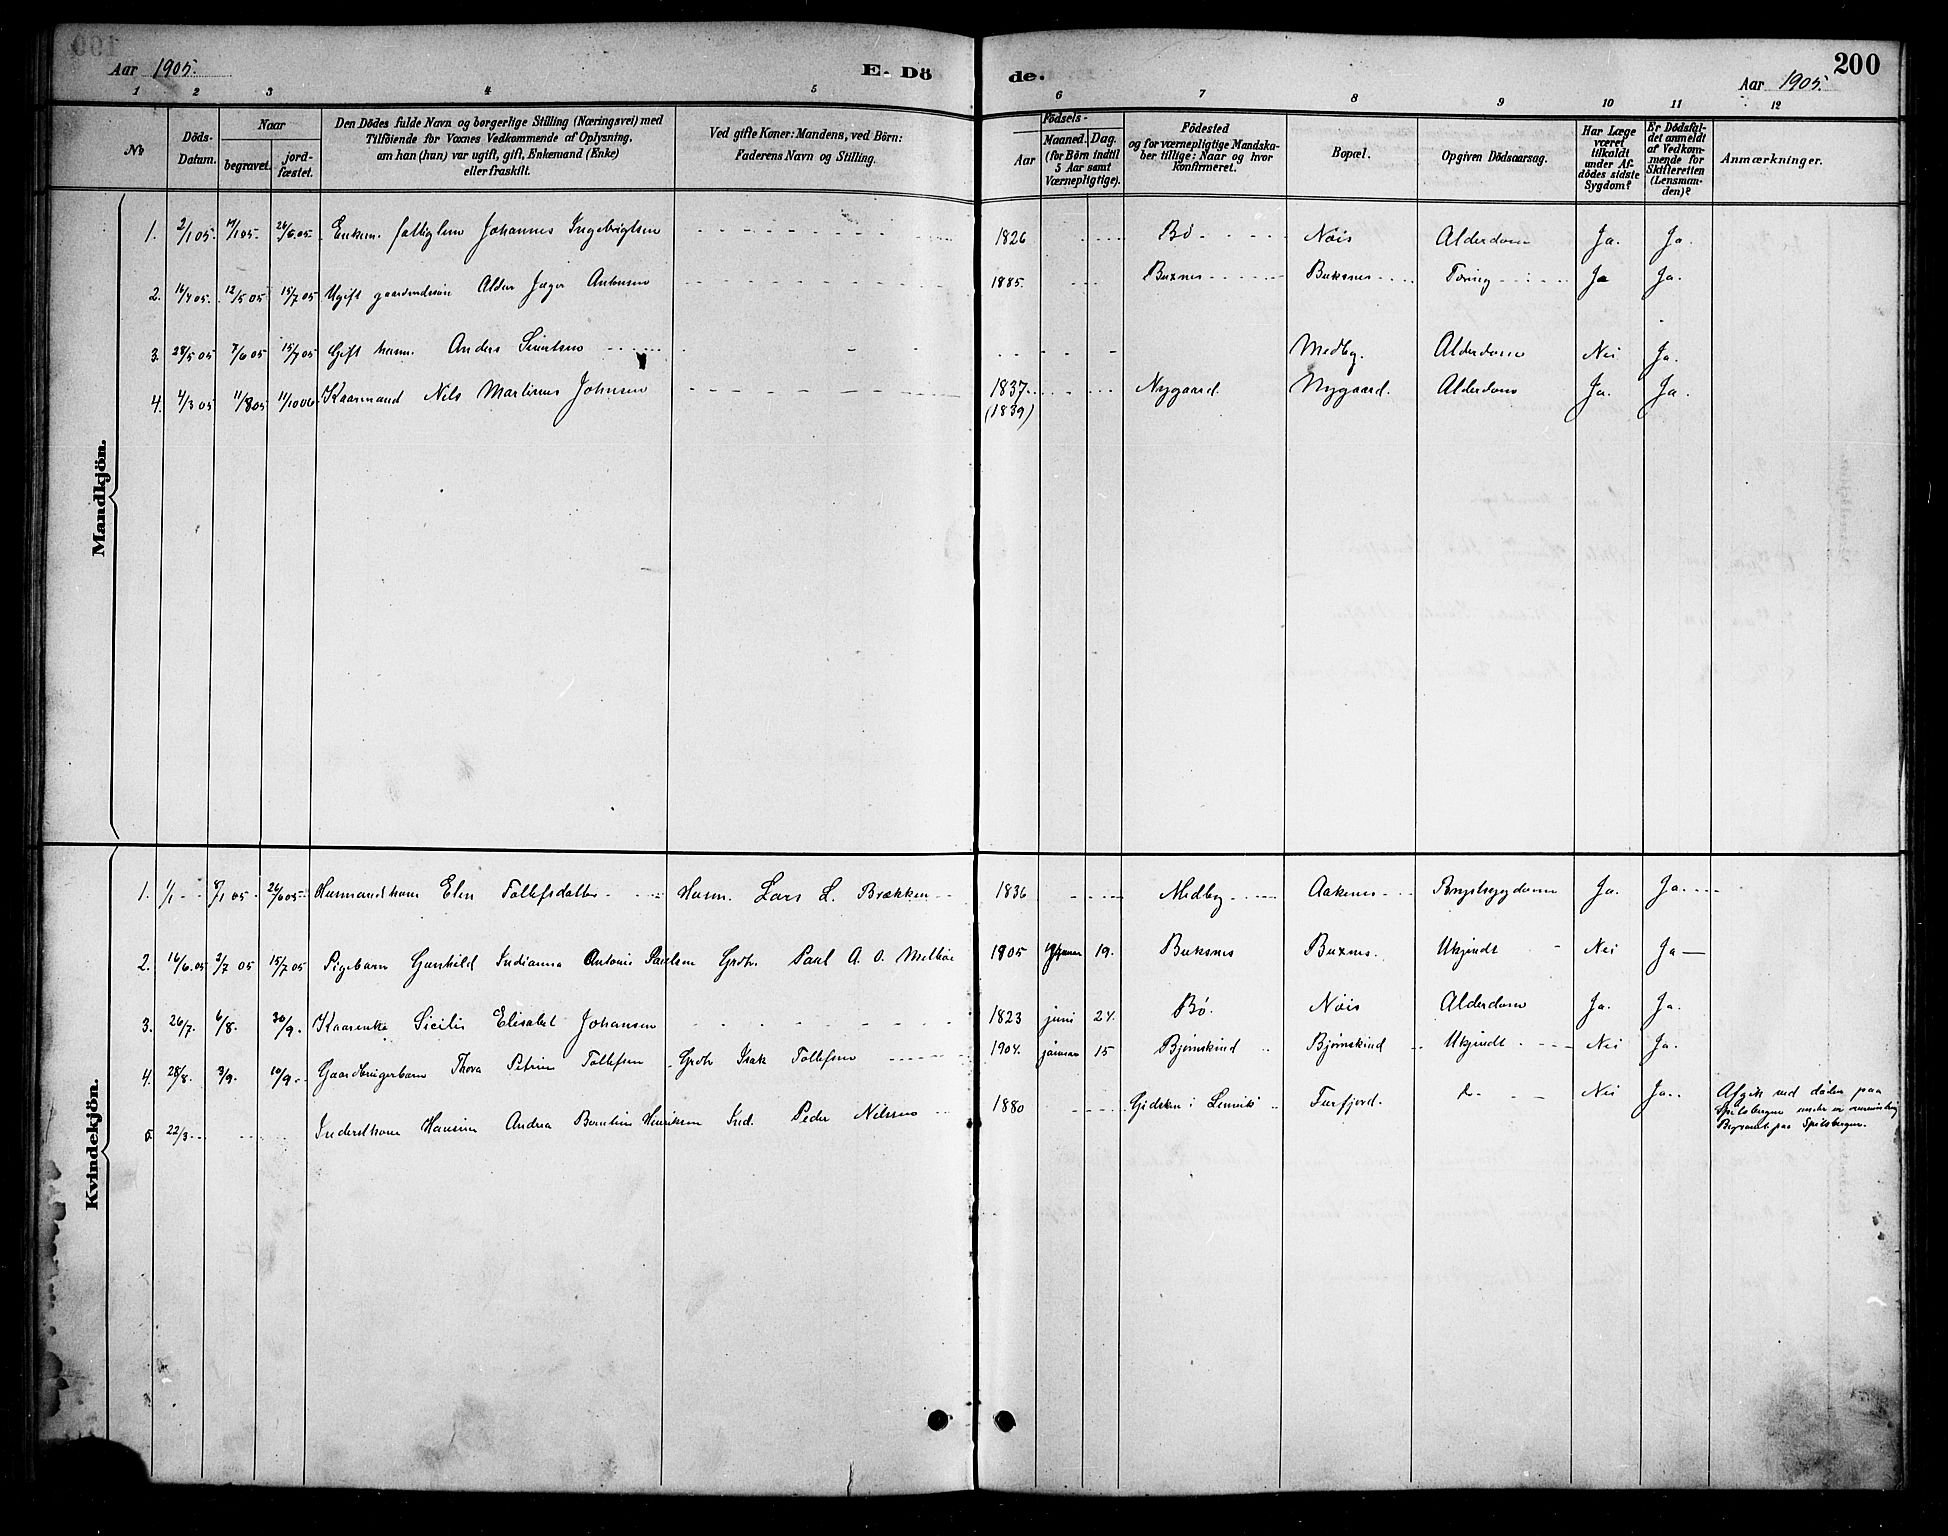 Aar 1905.
E. Dö
de.
200
Aar 1905.
1 2 3 4 5 6 7 8 9 10 11 12
No
Döds-Datum.
Naar
begravet.
jord-fæstet.
Den Dödes fulde Navn og borgerlige Stilling (Næringsvei) med
Tilföiende for Voxnes Vedkommende af Oplysning,
om han (hun) var ugift, gift, Enkemand (Enke)
eller fraskilt.
Ved gifte Koner: Mandens, ved Börn:
Faderens Navn og Stilling.
Födsels-
Aar
Maaned. Dag.
(for Börn indtil
5 Aar samt
Værnepligtige).
Födested
og for værnepligtige Mandska-
ber tillige: Naar og hvor
konfirmeret.
Bopæl.
Opgiven Dödsaarsag.
Har Læge
været
tilkaldt
under Af-
dödes sidste
Sygdom?
Er Dödsfal-
det anmeldt
af Vedkom-
mende for
Skifteretten
(Lensman-
den)?
Anmærkninger.
Mandkjön.
1. 2/1 05. 26/6.05 Enkem. fattiglem Johannes Ingebrigtsen 1826 Bö Nöis Alderdom Ja. Ja.
2. 12/5 05 15/7 05 Ugift gaardmdssön Jæger Antonsen 1885. Buxnes Buksnes Ja Ja.
3. 28/5 05 7/6 05 15/7 05 Gift husm. Anders Medby. Alderdom Nei Ja.
4. 11/8 05 Kaarmand Nils Martinus Johnsen 1837. Nygaard. Nygaard. Alderdom Ja. Ja.
(1839)
Kvindekjön.
1. 1/1 8/1 05. 26/6 05 Husmandskone Elen Tollefsdatter Husm. Lars L. Brækken 1836 Medby Aakenes Brystsygdom Ja. Ja.
2. 16/6.05 2/7 05 15/7 05 Pigebarn Gunhild Indianna Antonie Paulsen Grbr. Paul A. O. Melböe 1905 19. Buksnes Buxnes. Ukjendt Nei Ja
3. 26/7. 6/8. 30/9. Kaarenke Sicilie Elisabet Johansen 1823 juni 24. Bö. Nöis Alderdom Ja. Ja.
4. 28/8. 3/9. 10/9. Gaardbrugerbarn Thora Petrine Tollefsen Grbr Isak Tollefsen 1904. januar 15 Bjørnskind Bjørnskind Ukjendt Nei Ja.
5. 22/3 Inderstkone Hansine Andrea Henriksen Ind. Peder Nilssen 1880 i Lenvik Nei Ja. Afgik ved döden paa
Spitsbergen under en
Begravet paa Spitsbergen.